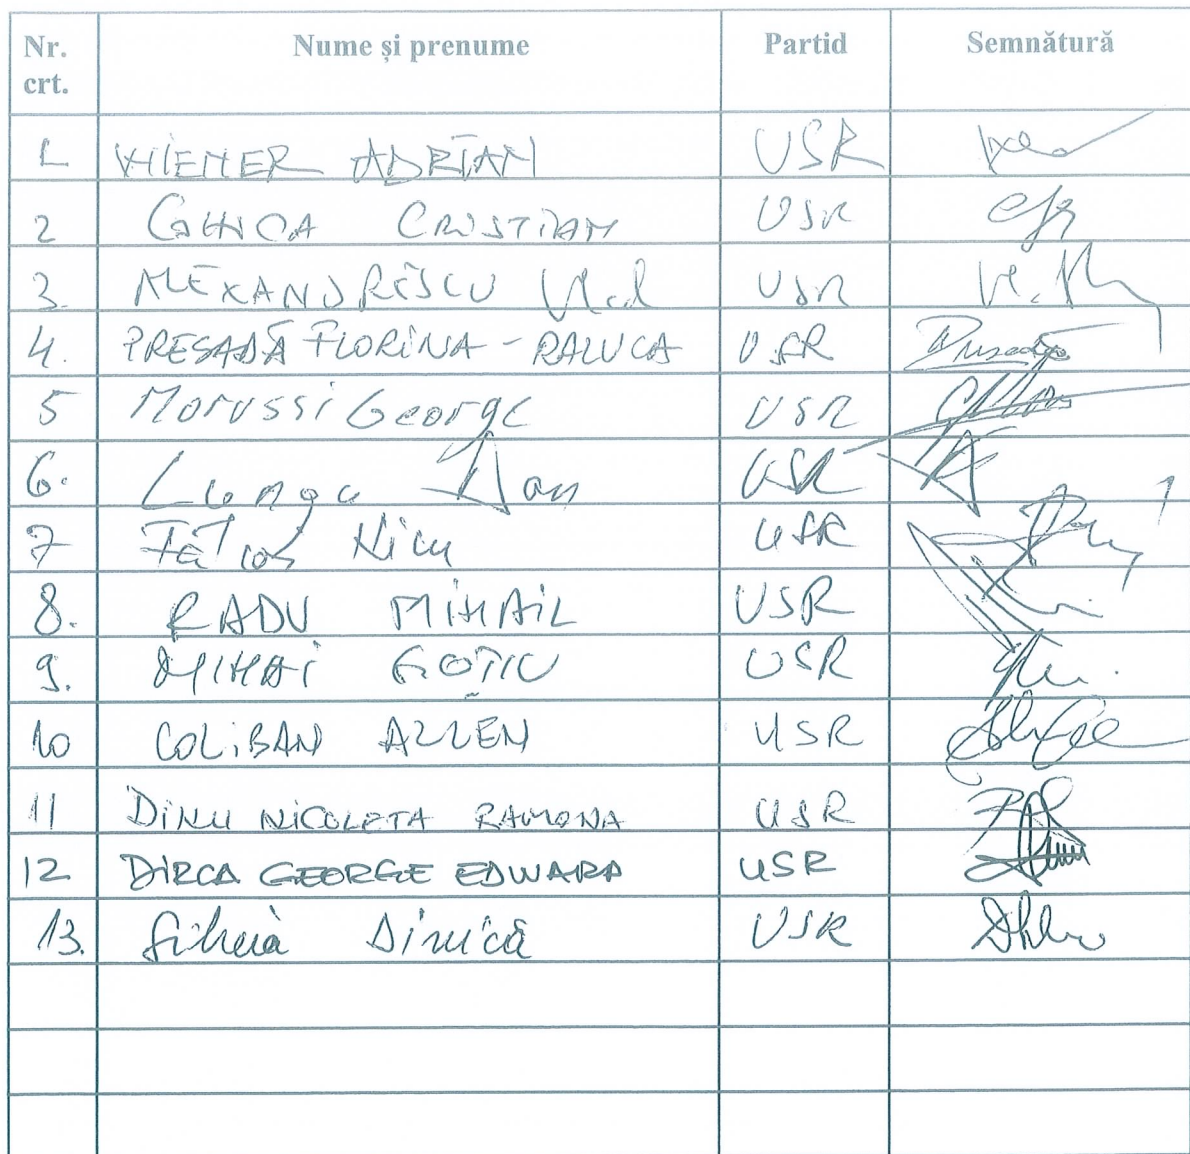 Nr. crt. Nume și prenume Partid Semnătură
1 WIENER ADRIAN USR
2 GHICA CRISTIAN USR
3. ALEXANDRESCU Vlad USR
4. PRESADĂ FLORINA - RALUCA USR
5 Marussi George USR
6. Lungu Dan USR
7 Fălcoi Nicu USR
8. RADU MIHAIL USR
9. MIHAI GOȚIU USR
10 COLIBAN ALLEN USR
11 DINU NICOLETA RAMONA USR
12 DIRCA GEORGE EDWARD USR
13. Silvia Dinică USR